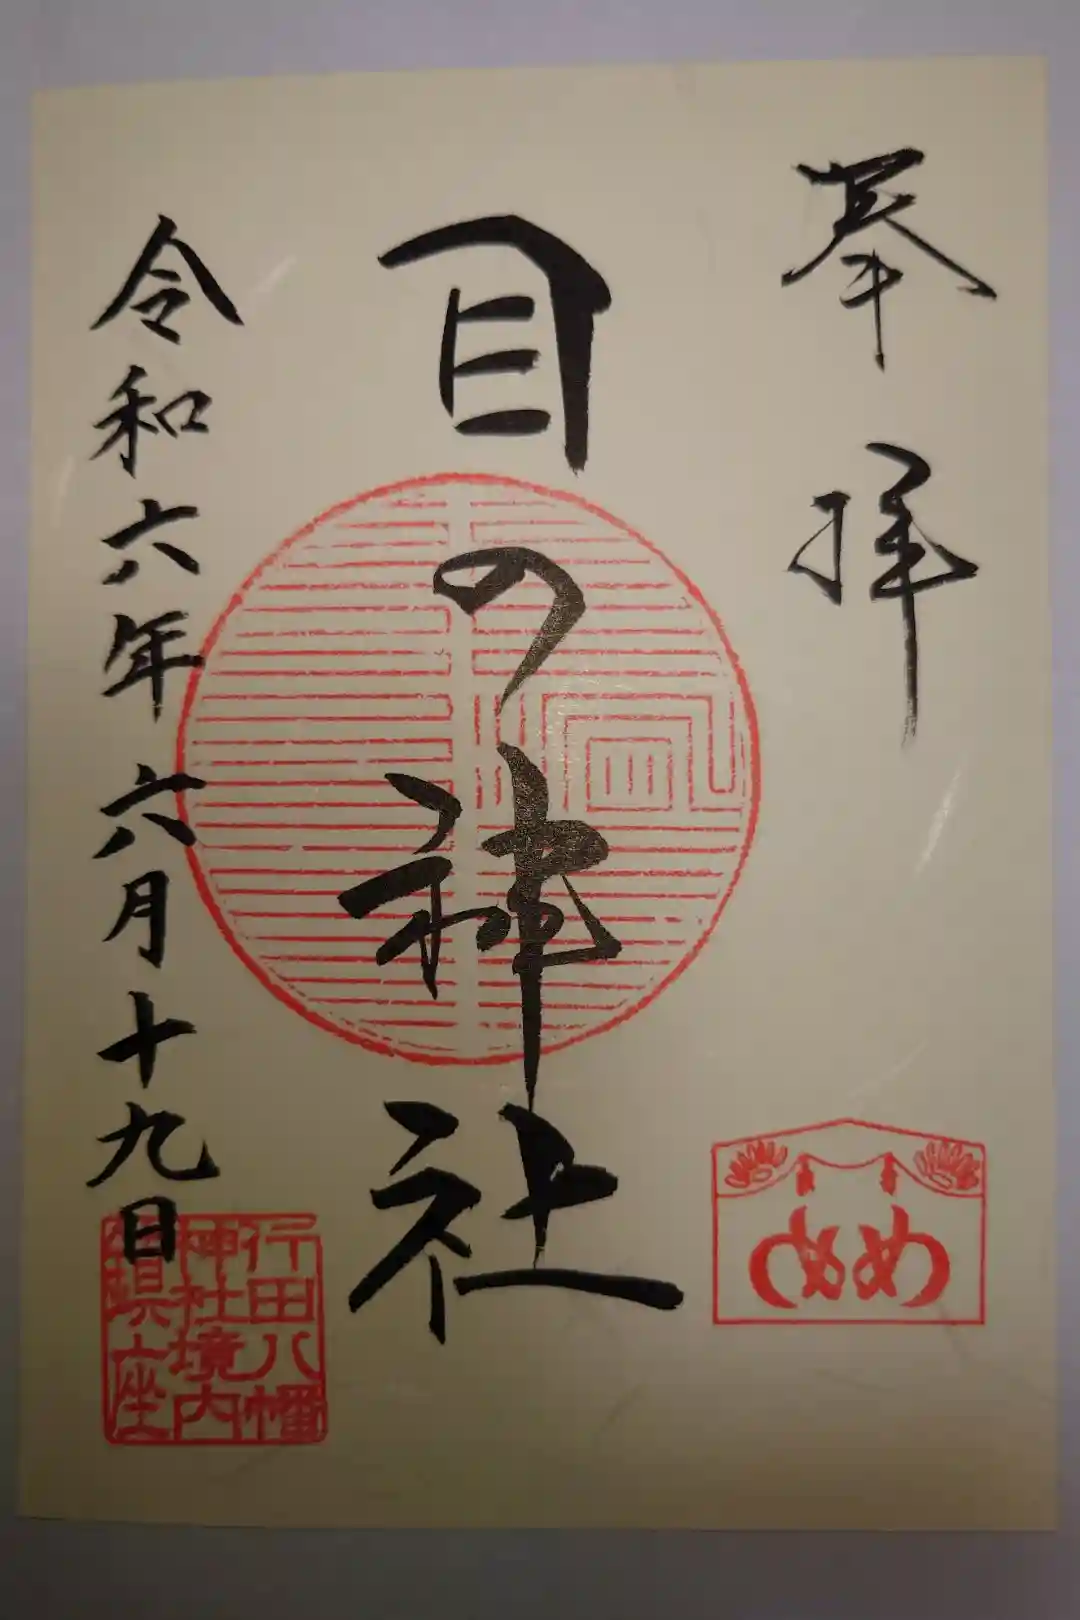 奉拝
目の神社
令和六年六月十九日
行田八幡
神社境内
鎮座
めめ